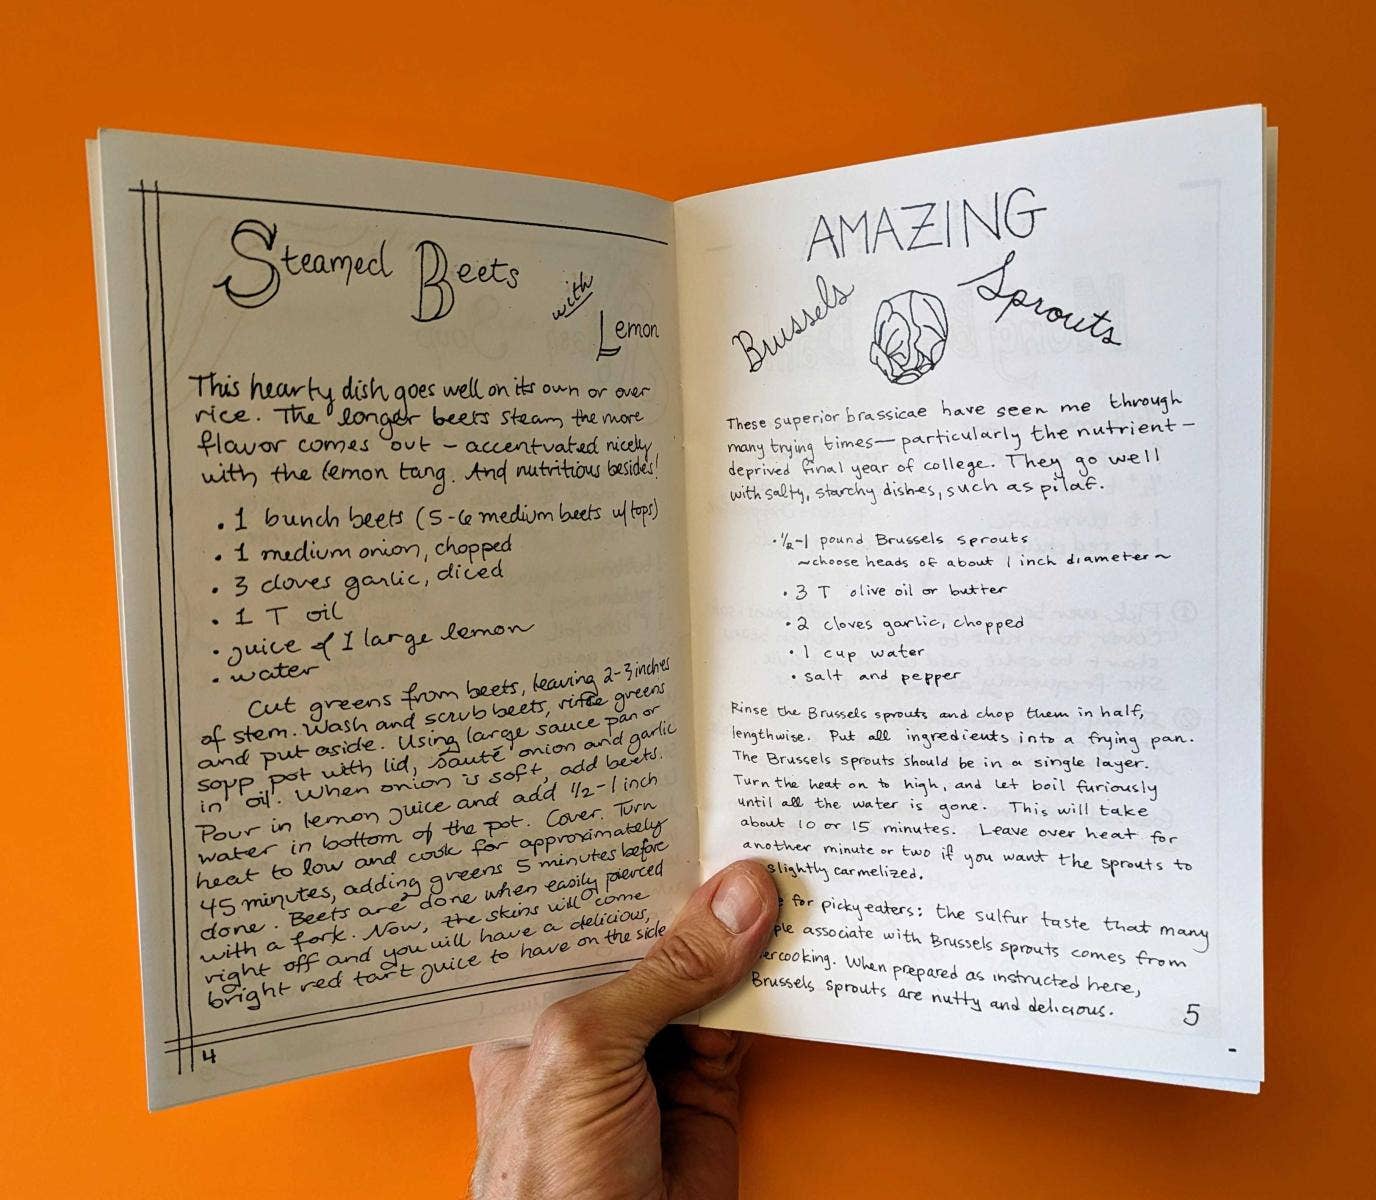 Steamed Beets
with
Lemon
This hearty dish goes well on its own or over
rice. The longer beets steam, the more
flavor comes out – accentuated nicely
with the lemon tang. And nutritious besides!
• 1 bunch beets (5-6 medium beets w/tops)
• 1 medium onion, chopped
• 3 cloves garlic, diced
• 1 T oil
• juice of 1 large lemon
• water
Cut greens from beets, leaving 2-3 inches
of stem. Wash and scrub beets, rinse greens
and put aside. Using large sauce pan or
soup pot with lid, sauté onion and garlic
in oil. When onion is soft, add beets.
Pour in lemon juice and add 1/2-1 inch
water in bottom of the pot. Cover. Turn
heat to low and cook for approximately
45 minutes, adding greens 5 minutes before
done. Beets are done when easily pierced
with a fork. Now, the skins will come
right off and you will have a delicious,
bright red tart juice to have on the side
4
AMAZING
Brussels Sprouts
These superior brassicae have seen me through
many trying times—particularly the nutrient-
deprived final year of college. They go well
with salty, starchy dishes, such as pilaf.
• 1/2-1 pound Brussels sprouts
~choose heads of about 1 inch diameter~
• 3 T olive oil or butter
• 2 cloves garlic, chopped
• 1 cup water
• salt and pepper
Rinse the Brussels sprouts and chop them in half,
lengthwise. Put all ingredients into a frying pan.
The Brussels sprouts should be in a single layer.
Turn the heat on to high, and let boil furiously
until all the water is gone. This will take
about 10 or 15 minutes. Leave over heat for
another minute or two if you want the sprouts to
slightly carmelized.
for picky eaters: the sulfur taste that many
associate with Brussels sprouts comes from
When prepared as instructed here,
Brussels sprouts are nutty and delicious.
5